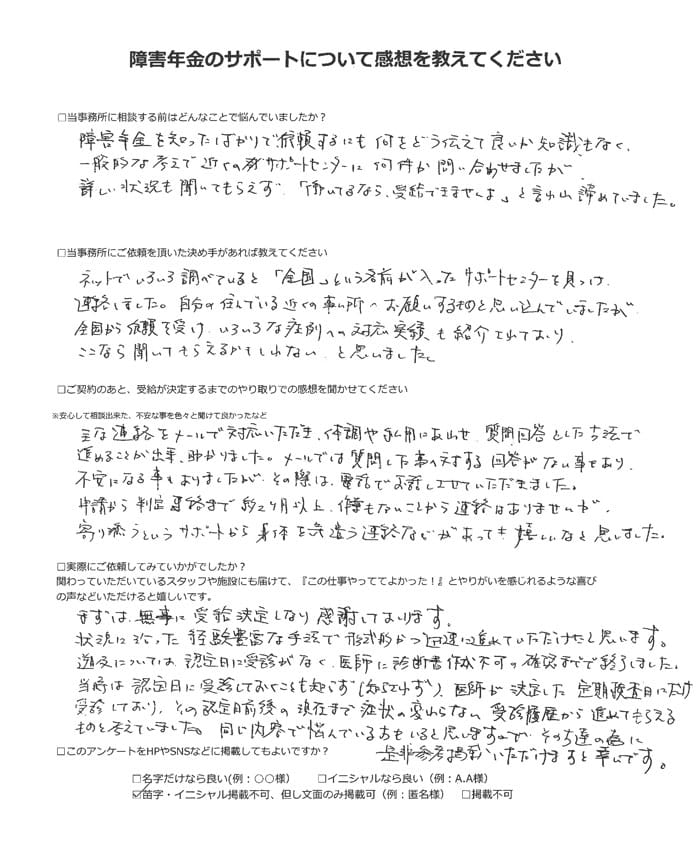 障害年金のサポートについて感想を教えてください
□当事務所に相談する前はどんなことで悩んでいましたか？
障害年金を知ったばかりで依頼するにも何をどう伝えて良いか知識もなく、
一般的な考えで近くのサポートセンターに何件か問い合わせましたが
詳しい状況も聞いてもらえず、「働いてるなら、受給できませんよ」と言われ諦めていました。
□当事務所にご依頼を頂いた決め手があれば教えてください
ネットでいろいろ調べていると「全国」という名前が入ったサポートセンターを見つけ、
連絡しました。自分の住んでいる近くの事ム所へお願いするものと思い込んでしましたが、
全国から依頼を受け、いろいろな症例への対応実績も紹介されており、
ここなら聞いてもらえるかもしれない、と思いました。
□ご契約のあと、受給が決定するまでのやり取りでの感想を聞かせてください
※安心して相談出来た、不安な事を色々と聞けて良かったなど
主な連絡をメールで対応いただき、体調や私用にあわせ、質問回答とした方法で
進めることが出来、助かりました。メールでは質問した事へ対する回答がない事もあり、
不安になる事もありましたが、その際は、電話でお話しさせていただきました。
申請から判定連絡まで約2ヶ月以上、何もないことから連絡はありませんが、
寄り添うというサポートから身体を気遣う連絡などがあっても嬉しいなと思いました。
□実際にご依頼してみていかがでしたか？
関わっていただいているスタッフや施設にも届けて、『この仕事やっててよかった！』とやりがいを感じれるような喜び
の声などいただけると嬉しいです。
まずは、無事に受給決定しなり感謝しております。
状況に沿った経験豊富な手法で形式的かつ迅速に進れていただけたと思います。
遡及については、認定日に受診がなく、医師に診断書作成が不可の確認までで終了しました。
当時は認定日に受診しておくことも知らず(知らされず)、医師が決定した定期検査日にだけ
受診しており、その認定日前後の現在まで症状の変わらない受診履歴から進れてもらえる
ものと考えていました。同じ内容で悩んでいる方もいると思いますので、その方達の為に
是非参考掲載いただけますと幸いです。
□このアンケートをHPやSNSなどに掲載してもよいですか？
□名字だけなら良い(例：○○様) □イニシャルなら良い（例：A.A様）
☑苗字・イニシャル掲載不可、但し文面のみ掲載可（例：匿名様） □掲載不可